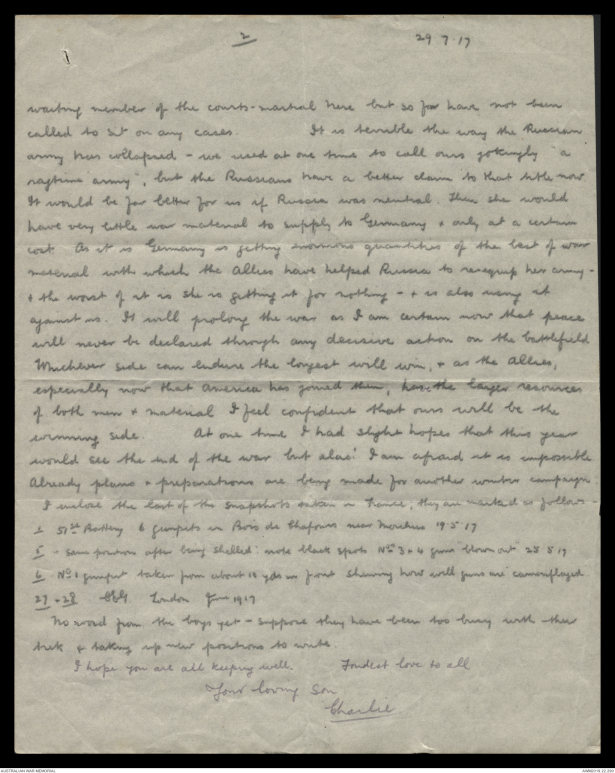 2
29.7.17
waiting member of the courts-martial here but so far have not been
called to sit on any cases. It is terrible the way the Russian
army has collapsed - we used at one time to call ours jokingly "a
ragtime army", but the Russians have a better claim to that title now
It would be far better for us if Russia was neutral. Then she would
have very little war material to supply to Germany & only at a certain
cost. As it is Germany is getting enormous quantities of the best of war
material with which the Allies have helped Russia to re-equip her army -
& the worst of it is she is getting it for nothing - & is also using it
against us. It will prolong the war as I am certain now that peace
will never be declared through any decisive action on the battlefield
Whichever side can endure the longest will win, & as the Allies,
especially now that America has joined them, have the larger resources
of both men & material I feel confident that ours will be the
winning side. At one time I had slight hopes that this year
would see the end of the war but alas! I am afraid it is impossible
Already plans & preparations are being made for another winter campaign
I enclose the last of the snapshots taken in France, they are marked as follows -
51st Battery 6 gunpits in Bois de near 19.5.17
5 - same position after being shelled: note black spots Nos 3 & 4 guns "blown out" 23.5.17
6 No 1 gunpit taken from about 10 yds in front shewing how well guns are camouflaged
27 & 28 London June 1917
No word from the boys yet - suppose they have been too busy with their
trek & taking up new positions to write
I hope you are all keeping well. Fondest love to all
Your loving Son
Charlie.
AUSTRALIAN WAR MEMORIAL